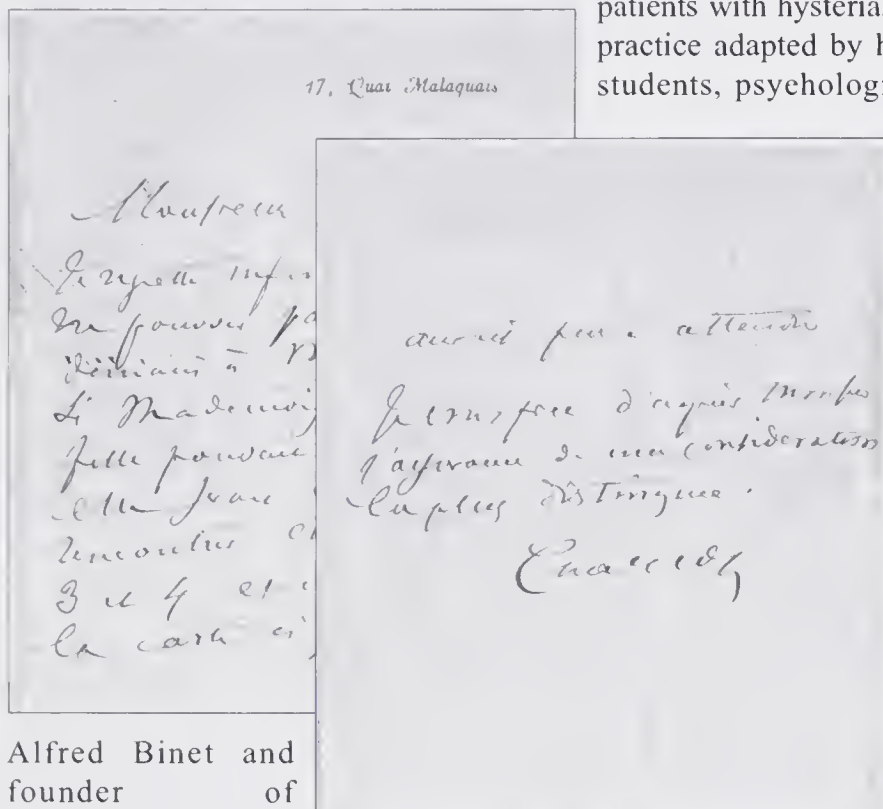 patients with hysteria
practice adapted by h
students, psyehologi
17, Quai Malaquais
Monsieur
Je regrette infi
ne pouvoir pa
demain à
Si Mademoi
fille pouvait
elle
rencontrer
3 et 4 et
la carte ci
aurait peu à attendre
Je vous prie d'agréer
l'assurance de ma considération
la plus distinguée.
Alfred Binet and
founder of